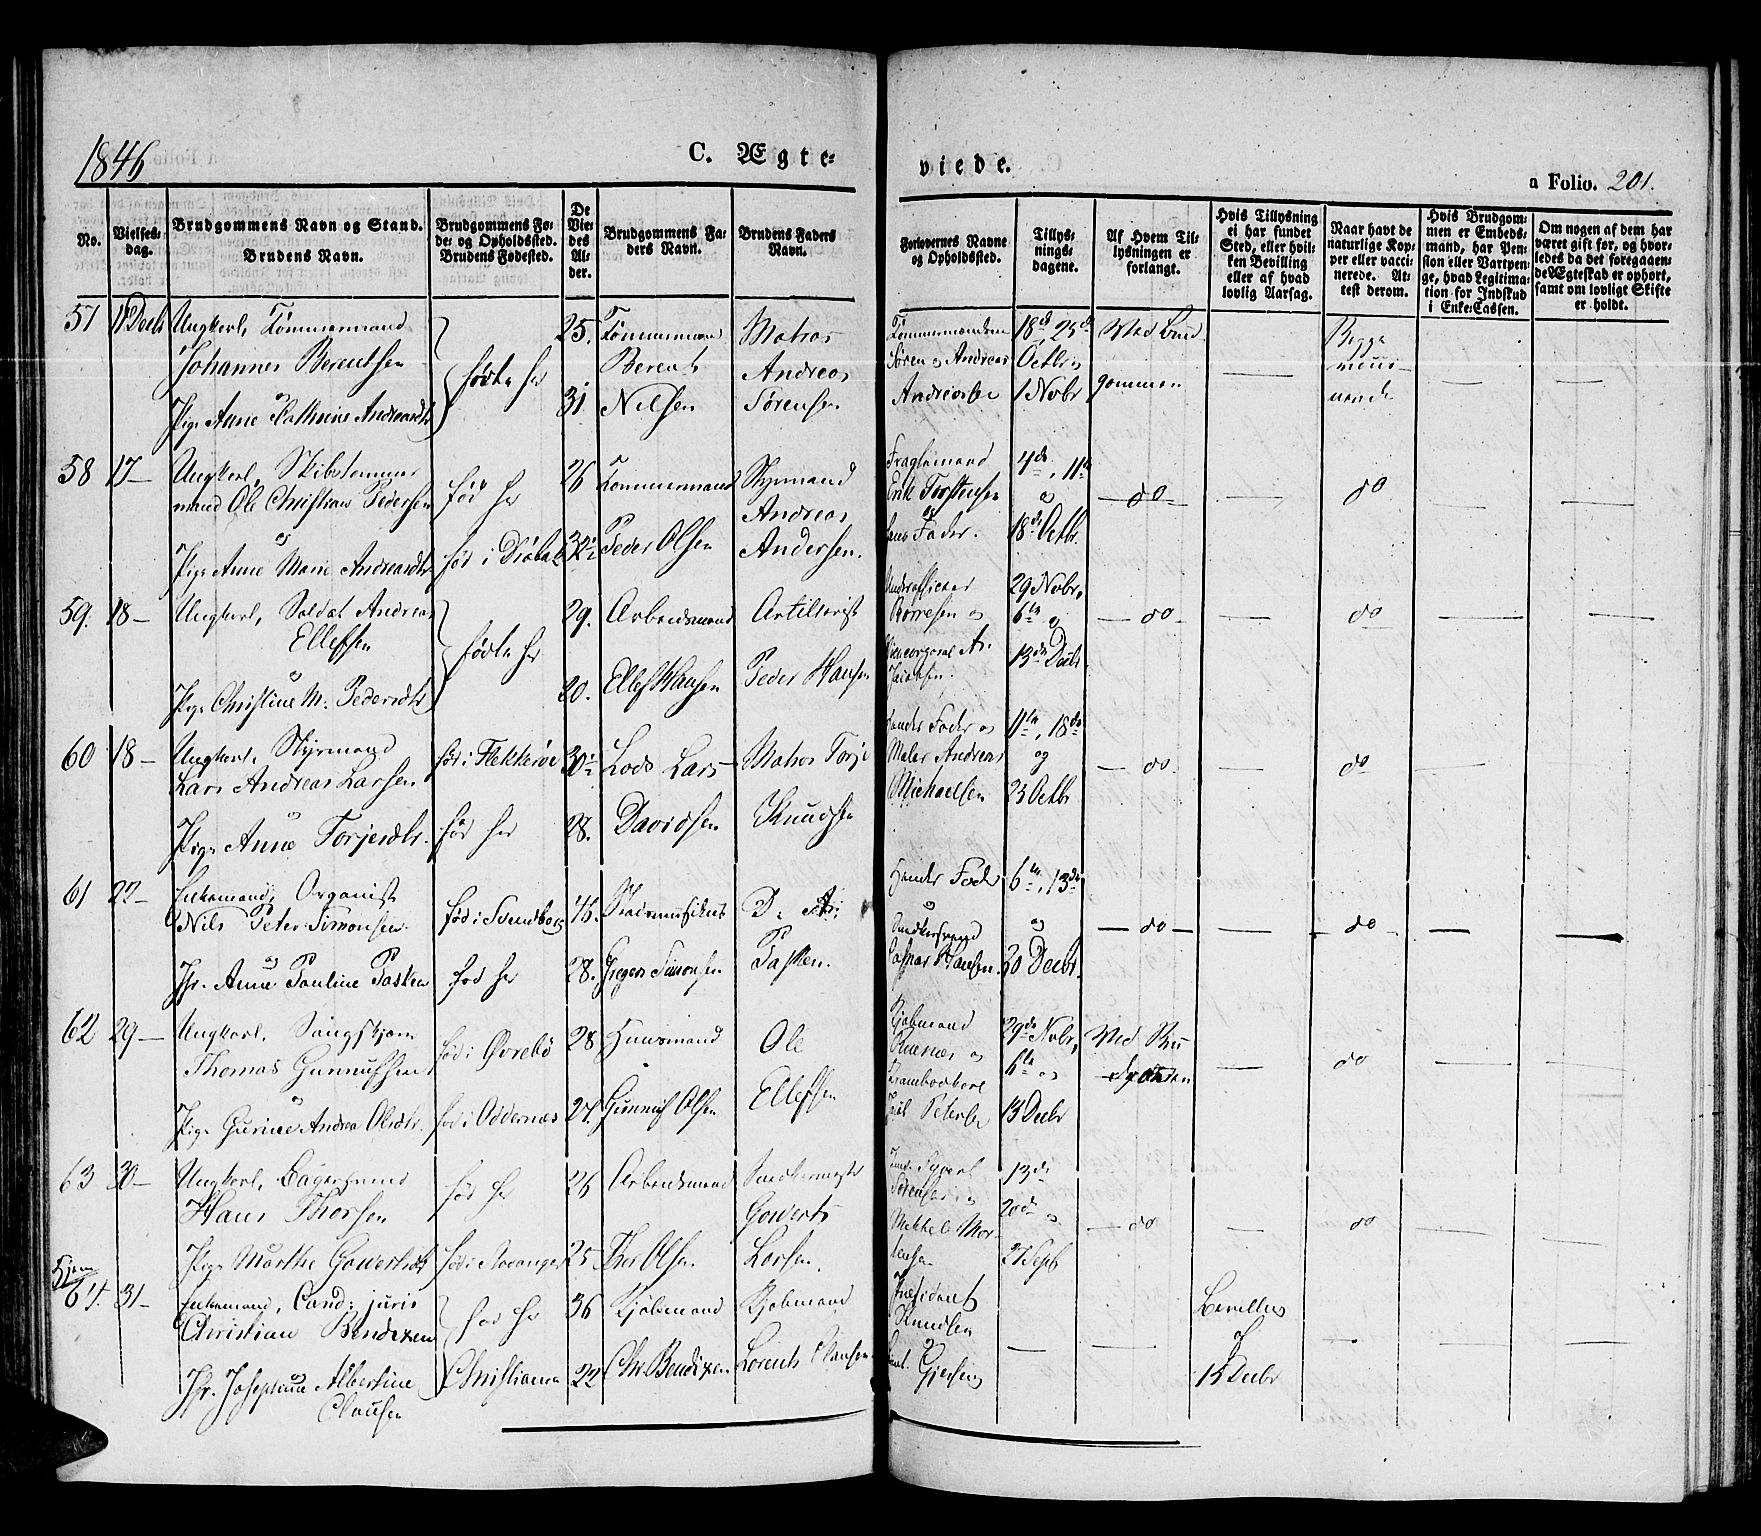 1846
C. Ægte-
viede.
a Folio. 201.
No.
Vielses-
dag.
Brudgommens Navn og Stand.
Brudens Navn.
Brudgommens Fø-
de- og Opholdssted.
Brudens Fødested.
De
Vie-
des
Al-
der.
Brudgommens Fa-
ders Navn.
Brudens Faders
Navn.
Forlovernes Navne
og Opholdssted.
Tillys-
nings-
dagene.
Af Hvem Til-
lysningen er
forlangt.
Hvis Tillysning
ei har fundet
Sted, eller hvil-
ken Bevilling
eller af hvad
lovlig Aarsag.
Naar havt de
naturlige Kop-
per eller vacci-
nerede. At-
test derom.
Hvis Brudgom-
men er Embeds-
mand, har Pen-
sion eller Vartpen-
ge, hvad Legitima-
tion for Indskud
i Enke-Cassen.
Om nogen af dem har
været gift før, og hvor-
ledes da det foregaaen-
de Ægteskab er ophørt,
samt om lovligt Skifte
er holdt.
57 Decbr Ungkarl, Tømmermand
Johannes Berentsen
Pige Anne Cathrine Andreasdtr
fødte her
25. 31
Tømmermand
Berent
Nilsen
Matros
Andreas
Sørensen
Tømmermændene
Søren og Andreas
Andreassen
18de, 25de
Octbr og
1 Novbr
Ved Brud
gommen
Begge
vacci-
nerede
58 17 – Ungkarl, Skibstømmer
mand Ole Christian Pedersen
og
Pige Anne Marie Andreasdtr
fød her
fød i Drøbak
26 32½
Tømmermand
Peder Olsen
Styrmand
Andreas
Andersen.
Fragtemand
Erik Torstensen
og
hans Fader.
4de, 11te
og
18de Octbr.
– do –
do
59. 18 – Ungkarl, Soldat Andreas
Ellefsen
og
Pige Christine M. Pedersdtr
fødte her
29. 20.
Arbeidsmand
Ellef Hansen
Artillerist
Peder Hansen
Underofficier
Børresen og
Vicecorporal A.
Jacobsen.
29 Novbr,
6te og
13de Decbr
– do –
do
60 18 – Ungkarl, Styrmand
Lars Andreas Larsen
og
Pige Anne Torjesdtr.
fød i Flekkerøe
fød her
30½ 28.
Lods Lars
Davidsen
Matros Torje
Knudsen
Hendes Fader og
Maler Andreas
Michaelsen
11te, 18de
og
25 Octbr
– do
do
61 22 – Enkemand, Organist
Nils Peter Simonsen
og
Jfr. Anne Pauline Pasken
fød i Svendborg
fød her
46. 28.
Stadsmusikus
Gregers Simonsen
Pasken.
Hendes Fader
og
Snedkersvend
Hansen.
6te, 13de
og
20 Decbr
– do –
do
62 29 – Ungkarl,
Thomas Gunnufsen
og
Pige Gurine Andrea Olsdtr.
fød i Øvrebø
fød i Oddernæs
28 27.
Huusmand
Gunnuf Olsen
Ole
Ellefsen
Kjøbmand
og
Krambodkarl
Petersen
29de Novbr,
6te og
13 Decbr
Ved Bru
den
do
63 30 – Ungkarl, Bagersvend
Hans Thorsen
Pige Marthe Gowertsdtr
fød her
fød i Stavanger
26 25
Arbeidsmand
Thor Olsen
Snedkermester
Gowerts
Larsen.
Sørensen og
Mikkel Mor
tensen
13de
20de og
27 Septb
– do
do
Hjem
64. 31 – Enkemand, Cand: juris
Christian Bendixen
Jfr. Josephine Albertine
Clausen
fød her
Christiania
36 22
Kjøbmand
Chr. Bendixen
Kjøbmand
Lorents Clausen
Præsident
Knudsen
og
Giersing
Bevilling
15 Decbr